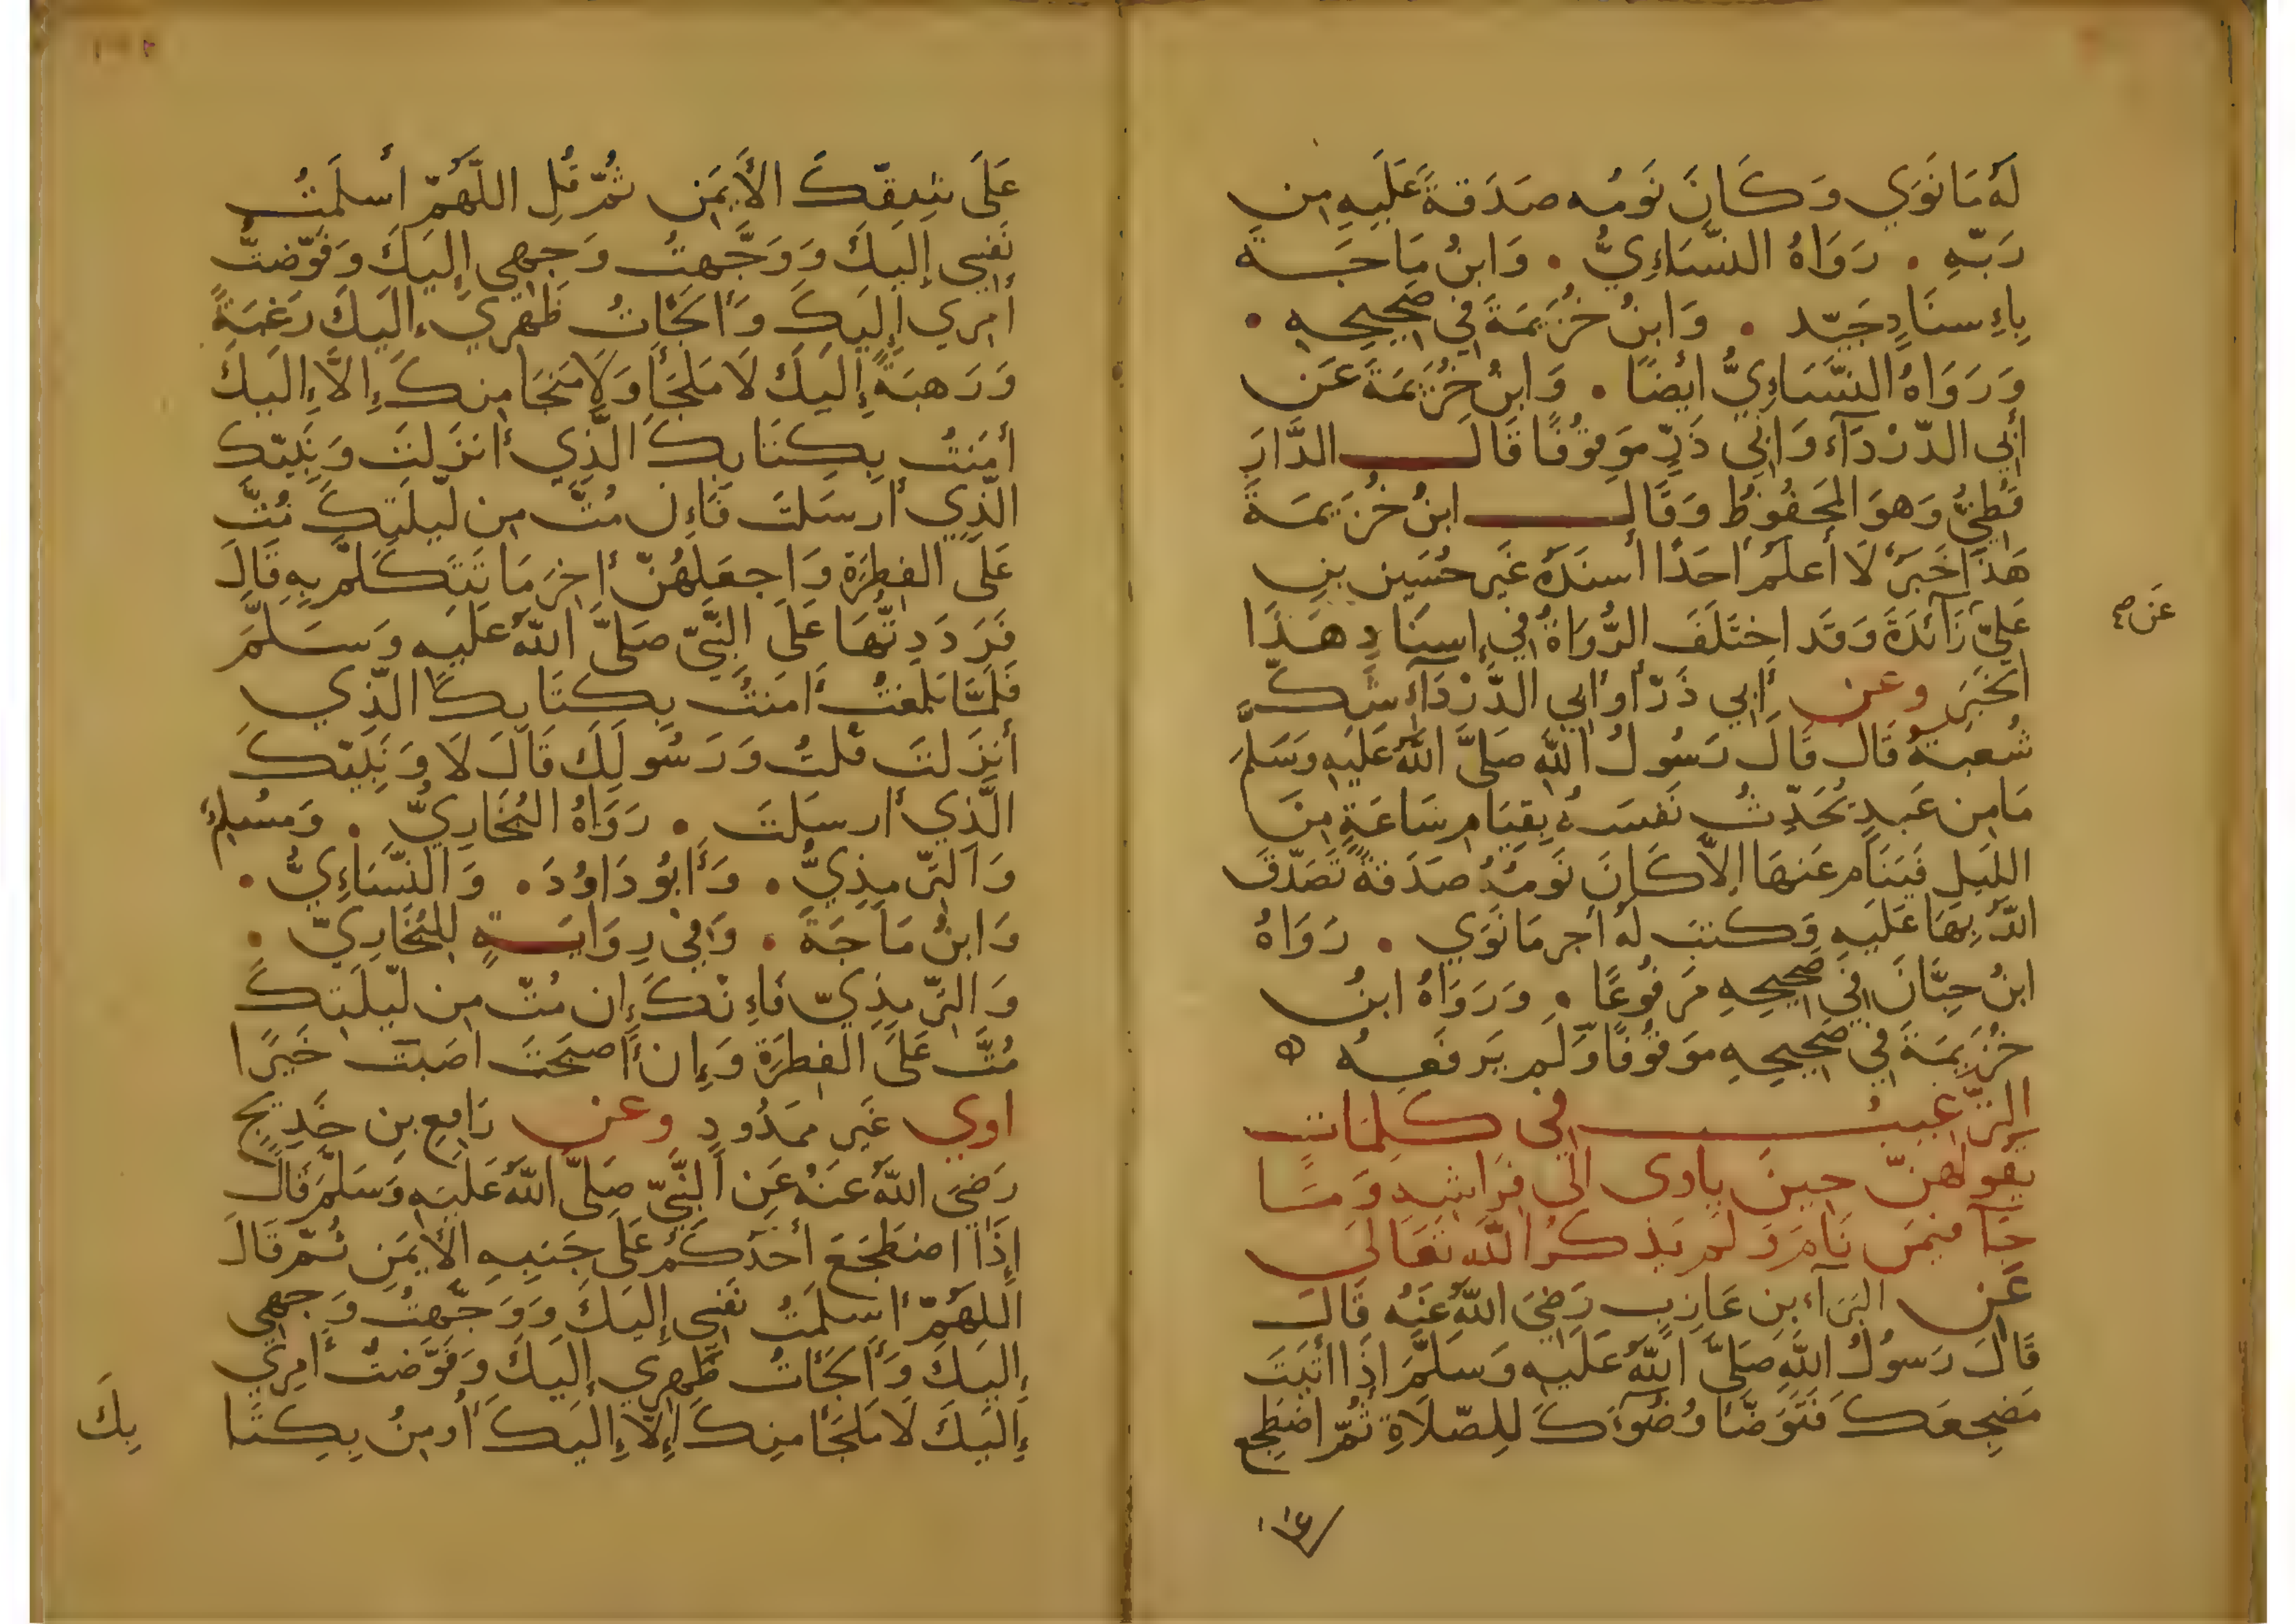 لَهُ مَا نَوَي وَكَانَ نَومُه صَدَقةً عَلَيهِ مِن
رَبّهِ . رَوَاهُ النسَّاءِيُّ . وَابنُ مَاجَة
بِاءِسنَادٍ جَيّد . وَابنُ خُزَيمَةَ فِي صَحِيحِهِ .
وَرَوَاهُ النسَّاءِيُّ ايْضًا . وَابنُ خُزَيمَةَ عَن
أبِي الدّرْدَآءِ وَابِي ذَرٍّ مَوقُوفًا قَالَ الدَّارَ
قُطنِيُّ وَهوَ المَحفُوظُ وَقَالَ ابنُ خُزَيمَةَ
هَذَا خَبَرٌ لَا أعلَمُ احَدًا أسنَدَهُ غَير حُسَين بنِ
عَليّ زَآئدَةَ وَقَد اختَلَفَ الرُّوَاةُ فِي إسنَادِ هَذَا
عَن صح
الخَبَرِ وعن أبِي ذَرّ أو أبِي الدَّرْدَآءِ شَكَّ
شُعبةُ قَال قَالَ رَسُولُ اللهِ صَلَّى اللهُ عَلَيهِ وَسَلَّمَ
مَا مِن عَبدٍ يُحَدِّثُ نَفسَهُ بِقيَامِ سَاعَةٍ مِنَ
اللَّيلِ فَيَنَام عَنهَا الَّا كَانَ نَومُهُ صَدَقةً تَصَدَّقَ
اللهُ بِهَا عَلَيهِ وَكتبَ لَهُ أجر مَا نَوَي . رَوَاهُ
ابنُ حِبَّانَ فِي صَحِيحِهِ مَرفُوعًا . وَرَوَاهُ ابنُ
خُزَيمَةَ فِي صَحِيحِهِ مَوقُوفًا وَلَم يَرفَعهُ ه
الترَّغيبُ فِي كلمَات
يقولهنّ حِينَ ياوى الَى فِرَاشِهِ وَمَا
جَآ فيمَن نَامَ وَلَم يَذكُر اللَّه تَعَالَى
عَن البَرَآء بنِ عَازِبٍ رَضِيَ اللهُ عَنهُ قَالَ
قَالَ رَسُولُ اللهِ صَلَّى اللهُ عَلَيهِ وَسَلَّمَ اذَا أتَيتَ
مَضجِعَكَ فَتَوَضَّأ وُضُوءَكَ لِلصّلَاةِ ثُمّ اضطجِع
عَلَى شِقّكَ الأَيمَنِ ثُمَّ قُلِ اللَّهُمّ أسلَمتُ
نَفسِي إلَيكَ وَوَجَّهتُ وَجهِي إِلَيكَ وَفَوّضتُ
أمرِي إِلَيكَ وَألجَأتُ ظَهرِي إلَيكَ رَغبَةً
وَرَهبَةً إِلَيكَ لَا مَلجَأ وَلَا مَنجَا مِنكَ إِلاَّ إِلَيكَ
أمَنتُ بِكِتَابِكَ الَّذِي أنزَلتَ وَنَبِيّكَ
الَّذِي أرسَلتَ فَاءِن مُتَّ مِن لَيلَتِكَ مُتَّ
عَلَى الفِطرَةِ وَاجعَلهُنَّ أخِرَ مَا تَتَكَلَّمُ بِهِ قَالَ
فَرَدَدتُّهَا عَلَى النَّبِيّ صَلَّى اللهُ عَلَيهِ وَسَلَّمَ
فَلَمَّا بَلَغتُ أمَنتُ بِكتَابِكَ الَّذِي
أنزَلتَ قُلتُ وَرَسُولِكَ قَالَ لَا وَنَبِيّكَ
الَّذِي أرسَلتَ . رَوَاهُ البُخَارِيُّ . وَمُسلِمٌ
وَالترّمِذِيُّ . وَأبُو دَاوُدَ . وَالنسَّاءِيُّ .
وَابنُ مَاجَةَ . وَفِي رِوَايَةٍ لِلبُخَارِيّ .
وَالترّمِذِيّ فَاءِنّكَ إِن مُتّ مِن لَيلَتِكَ
مُتَّ عَلَى الفِطرَةِ وَإِن أصبَحتَ اصَبتَ خَيرًا
اوي غَير مَمدُودٍ وعن رَافِعِ بنِ خَدِيجٍ
رَضِيَ اللهُ عَنهُ عَنِ النَّبِيّ صَلَّى اللهُ عَلَيهِ وَسَلَّمَ قَالَ
إِذَا اضطَجَعَ أحَدُكُم عَلَى جَنبِهِ الأيمَنِ ثُمّ قَالَ
اللَّهُمّ أسلَمتُ نَفسِي إلَيكَ وَوَجَّهتُ وَجهِي
إلَيكَ وَألجَأتُ ظَهرِي إلَيكَ وَفَوَّضتُ أمرِي
إلَيكَ لَا مَلجَأ مِنكَ إِلَّا إِلَيكَ أُومِنُ بِكِتَا
بِكَ